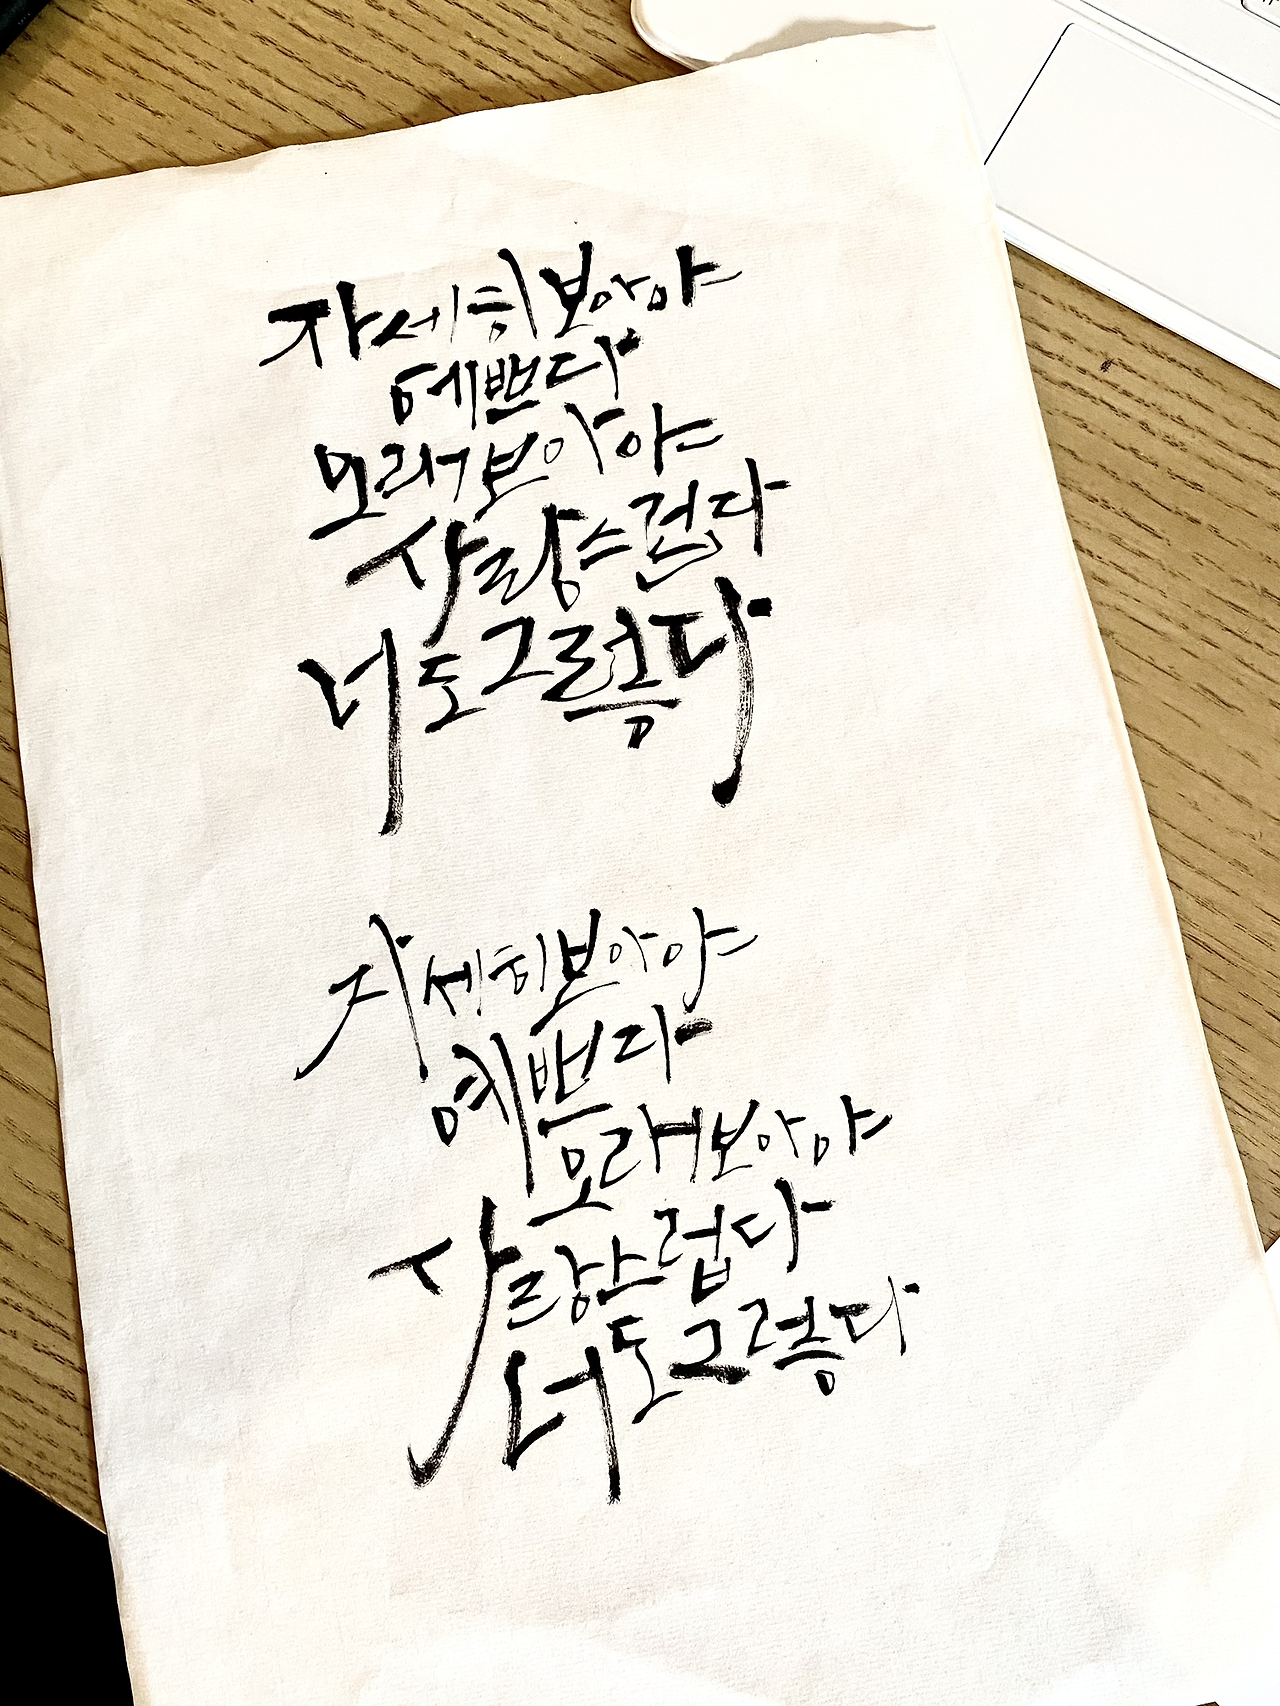 자세히보아야
예쁘다
오래보아야
사랑스럽다
너도그렇다
자세히보아야
예쁘다
오래보아야
사랑스럽다
너도그렇다